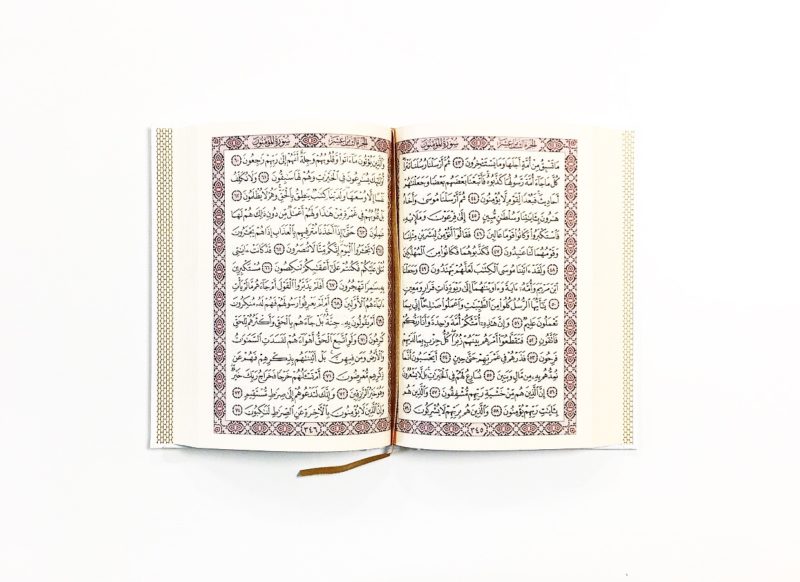 الجزء الثامن عشر
سورة المؤمنون
مَا تَسْبِقُ مِنْ أُمَّةٍ أَجَلَهَا وَمَا يَسْتَـْٔخِرُونَ ٤٣ ثُمَّ أَرْسَلْنَا رُسُلَنَا تَتْرَا
كُلَّ مَا جَآءَ أُمَّةً رَّسُولُهَا كَذَّبُوهُ فَأَتْبَعْنَا بَعْضَهُم بَعْضًا وَجَعَلْنَٰهُمْ
أَحَادِيثَ فَبُعْدًا لِّقَوْمٍ لَّا يُؤْمِنُونَ ٤٤ ثُمَّ أَرْسَلْنَا مُوسَىٰ وَأَخَاهُ
هَٰرُونَ بِـَٔايَٰتِنَا وَسُلْطَٰنٍ مُّبِينٍ ٤٥ إِلَىٰ فِرْعَوْنَ وَمَلَإِي۟هِۦ
فَٱسْتَكْبَرُوا۟ وَكَانُوا۟ قَوْمًا عَالِينَ ٤٦ فَقَالُوٓا۟ أَنُؤْمِنُ لِبَشَرَيْنِ مِثْلِنَا
وَقَوْمُهُمَا لَنَا عَٰبِدُونَ ٤٧ فَكَذَّبُوهُمَا فَكَانُوا۟ مِنَ ٱلْمُهْلَكِينَ
٤٨ وَلَقَدْ ءَاتَيْنَا مُوسَى ٱلْكِتَٰبَ لَعَلَّهُمْ يَهْتَدُونَ ٤٩ وَجَعَلْنَا
ٱبْنَ مَرْيَمَ وَأُمَّهُۥٓ ءَايَةً وَءَاوَيْنَٰهُمَآ إِلَىٰ رَبْوَةٍ ذَاتِ قَرَارٍ وَمَعِينٍ
٥٠ يَٰٓأَيُّهَا ٱلرُّسُلُ كُلُوا۟ مِنَ ٱلطَّيِّبَٰتِ وَٱعْمَلُوا۟ صَٰلِحًا إِنِّى بِمَا
تَعْمَلُونَ عَلِيمٌ ٥١ وَإِنَّ هَٰذِهِۦٓ أُمَّتُكُمْ أُمَّةً وَٰحِدَةً وَأَنَا۠ رَبُّكُمْ
فَٱتَّقُونِ ٥٢ فَتَقَطَّعُوٓا۟ أَمْرَهُم بَيْنَهُمْ زُبُرًا كُلُّ حِزْبٍ بِمَا لَدَيْهِمْ
فَرِحُونَ ٥٣ فَذَرْهُمْ فِى غَمْرَتِهِمْ حَتَّىٰ حِينٍ ٥٤ أَيَحْسَبُونَ أَنَّمَا
نُمِدُّهُم بِهِۦ مِن مَّالٍ وَبَنِينَ ٥٥ نُسَارِعُ لَهُمْ فِى ٱلْخَيْرَٰتِ بَل لَّا يَشْعُرُونَ
٥٦ إِنَّ ٱلَّذِينَ هُم مِّنْ خَشْيَةِ رَبِّهِم مُّشْفِقُونَ ٥٧ وَٱلَّذِينَ هُم
بِـَٔايَٰتِ رَبِّهِمْ يُؤْمِنُونَ ٥٨ وَٱلَّذِينَ هُم بِرَبِّهِمْ لَا يُشْرِكُونَ ٥٩
٣٤٥
الجزء الثامن عشر
سورة المؤمنون
وَٱلَّذِينَ يُؤْتُونَ مَآ ءَاتَوا۟ وَّقُلُوبُهُمْ وَجِلَةٌ أَنَّهُمْ إِلَىٰ رَبِّهِمْ رَٰجِعُونَ ٦٠
أُو۟لَٰٓئِكَ يُسَٰرِعُونَ فِى ٱلْخَيْرَٰتِ وَهُمْ لَهَا سَٰبِقُونَ ٦١ وَلَا نُكَلِّفُ
نَفْسًا إِلَّا وُسْعَهَا وَلَدَيْنَا كِتَٰبٌ يَنطِقُ بِٱلْحَقِّ وَهُمْ لَا يُظْلَمُونَ ٦٢
بَلْ قُلُوبُهُمْ فِى غَمْرَةٍ مِّنْ هَٰذَا وَلَهُمْ أَعْمَٰلٌ مِّن دُونِ ذَٰلِكَ هُمْ لَهَا
عَٰمِلُونَ ٦٣ حَتَّىٰٓ إِذَآ أَخَذْنَا مُتْرَفِيهِم بِٱلْعَذَابِ إِذَا هُمْ يَجْـَٔرُونَ
٦٤ لَا تَجْـَٔرُوا۟ ٱلْيَوْمَ إِنَّكُم مِّنَّا لَا تُنصَرُونَ ٦٥ قَدْ كَانَتْ ءَايَٰتِى
تُتْلَىٰ عَلَيْكُمْ فَكُنتُمْ عَلَىٰٓ أَعْقَٰبِكُمْ تَنكِصُونَ ٦٦ مُسْتَكْبِرِينَ
بِهِۦ سَٰمِرًا تَهْجُرُونَ ٦٧ أَفَلَمْ يَدَّبَّرُوا۟ ٱلْقَوْلَ أَمْ جَآءَهُم مَّا لَمْ يَأْتِ
ءَابَآءَهُمُ ٱلْأَوَّلِينَ ٦٨ أَمْ لَمْ يَعْرِفُوا۟ رَسُولَهُمْ فَهُمْ لَهُۥ مُنكِرُونَ
٦٩ أَمْ يَقُولُونَ بِهِۦ جِنَّةٌ بَلْ جَآءَهُم بِٱلْحَقِّ وَأَكْثَرُهُمْ لِلْحَقِّ
كَٰرِهُونَ ٧٠ وَلَوِ ٱتَّبَعَ ٱلْحَقُّ أَهْوَآءَهُمْ لَفَسَدَتِ ٱلسَّمَٰوَٰتُ
وَٱلْأَرْضُ وَمَن فِيهِنَّ بَلْ أَتَيْنَٰهُم بِذِكْرِهِمْ فَهُمْ عَن
ذِكْرِهِم مُّعْرِضُونَ ٧١ أَمْ تَسْـَٔلُهُمْ خَرْجًا فَخَرَاجُ رَبِّكَ خَيْرٌ
وَهُوَ خَيْرُ ٱلرَّٰزِقِينَ ٧٢ وَإِنَّكَ لَتَدْعُوهُمْ إِلَىٰ صِرَٰطٍ مُّسْتَقِيمٍ ٧٣
وَإِنَّ ٱلَّذِينَ لَا يُؤْمِنُونَ بِٱلْءَاخِرَةِ عَنِ ٱلصِّرَٰطِ لَنَٰكِبُونَ ٧٤
٣٤٦